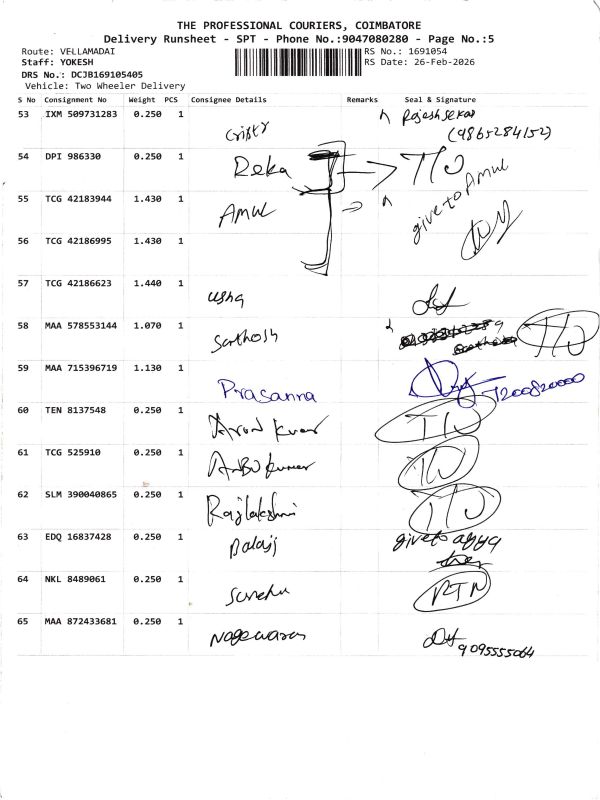 THE PROFESSIONAL COURIERS, COIMBATORE
Delivery Runsheet - SPT - Phone No.:9047080280 - Page No.:5
Route: VELLAMADAI
Staff: YOKESH
DRS No.: DCJB169105405
Vehicle: Two Wheeler Delivery
RS No.: 1691054
RS Date: 26-Feb-2026
S No Consignment No Weight PCS Consignee Details Remarks Seal & Signature
53 IXM 509731283 0.250 1 Rajeshsekar
(9865284152)
54 DPI 986330 0.250 1 Reka T/O
55 TCG 42183944 1.430 1 Amul give to Amul
56 TCG 42186995 1.430 1
57 TCG 42186623 1.440 1 usha
58 MAA 578553144 1.070 1 Santhosh T/O
59 MAA 715396719 1.130 1 Prasanna 7200820000
60 TEN 8137548 0.250 1 Arun kumar T/O
61 TCG 525910 0.250 1 ANBU kumar
62 SLM 390040865 0.250 1 Rajlakshmi T/O
63 EDQ 16837428 0.250 1 Balaji give to ayya
64 NKL 8489061 0.250 1 RTN
65 MAA 872433681 0.250 1 Nageswaran 9095555064